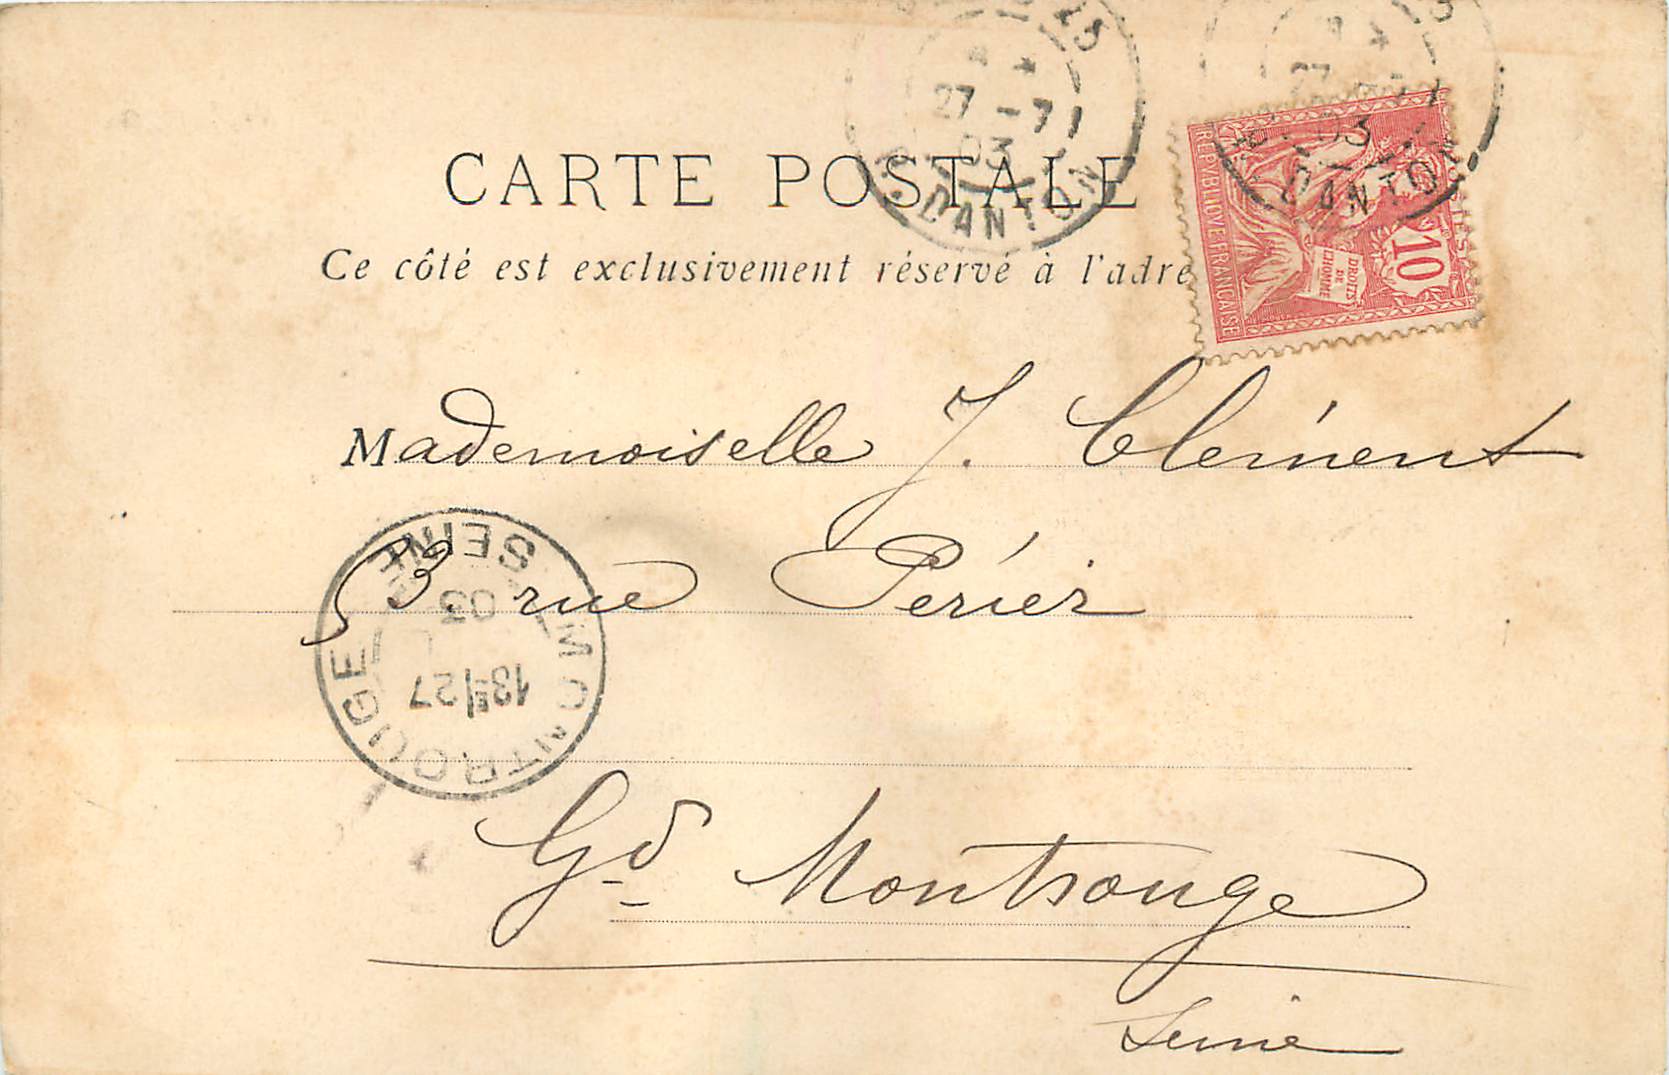 27 - 7
03
R. DANTON
03
DANTON
REPVBLIQVE FRANCAISE
POSTES
10
DROITS
DE
L'HOMME
CARTE POSTALE
Ce côté est exclusivement réservé à l'adre
Mademoiselle J. Clément
53 rue Périer
MONTROUGE
SEINE
13E/27
03
Gd Montrouge
Seine